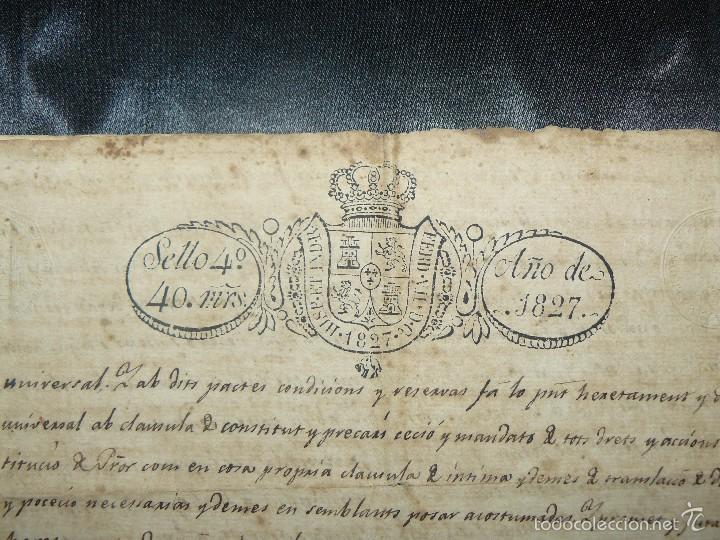 Sello 4º
40. mrs.
FERD·VII·D·G·
HISP·ET IND·R
·1827·
Año de
1827.
universal. Y ab dits pactes condicions y reservas fá lo pñt heretament y
universal ab clausula & constitut y precari ceció y mandato & tots drets y accions
titució & Pror com en cosa propria clausula & intima y demes & translació &
y poceció necessarias y demes en semblants posar acostumadas. Y promet y
todocoleccion.net